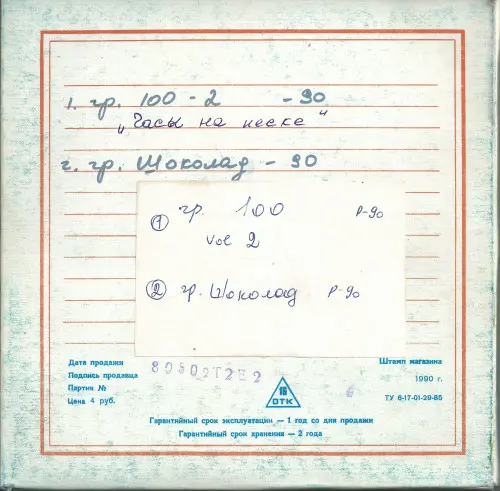 1. гр. 100 - 2 - 90
„Часы на песке"
2. гр. Шоколад - 90
① гр. 100 р-90
vol 2
② гр. Шоколад р-90
Дата продажи
Подпись продавца
Партия №
Цена 4 руб.
80502T2E2
16
ОТК
6
Штамп магазина
1990 г.
ТУ 6-17-01-29-85
Гарантийный срок эксплуатации — 1 год со дня продажи
Гарантийный срок хранения — 2 года